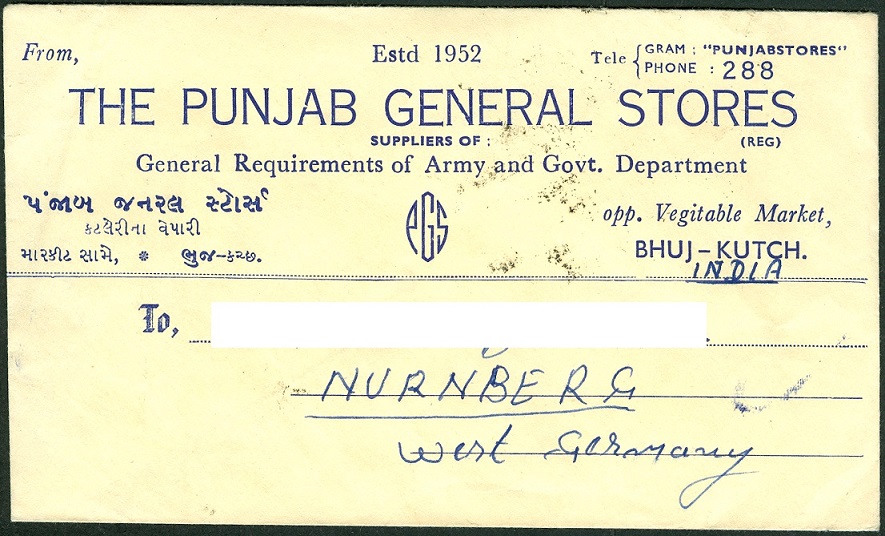 From,
Estd 1952
Tele { GRAM : "PUNJABSTORES"
PHONE : 288
THE PUNJAB GENERAL STORES
SUPPLIERS OF :
(REG)
General Requirements of Army and Govt. Department
પંજાબ જનરલ સ્ટોર્સ
કટલેરીના વેપારી
મારકીટ સામે, * ભુજ-કચ્છ.
PGS
opp. Vegitable Market,
BHUJ–KUTCH.
INDIA
To,
NURNBERG
West Germany